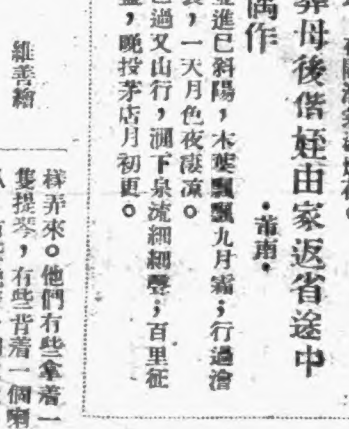 母後偕姪由家返省途中
偶作
進已斜陽,木葉飄飄九月霜;行過澮
,一天月色夜凄凉。
過又山行,澗下泉流細細聲;百里征
,晚投茅店月初更。
維善繪
樣弄來。他們有些拿着一
隻提琴,有些背着一個喇